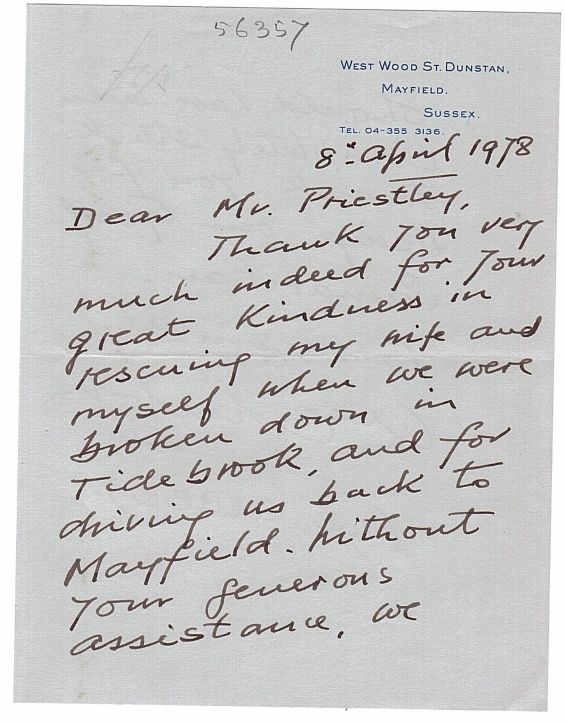 56357
WEST WOOD ST. DUNSTAN,
MAYFIELD.
SUSSEX.
TEL. 04-355 3136.
8th April 1978
Dear Mr. Priestley,
Thank you very
much indeed for your
great kindness in
rescuing my wife and
myself when we were
broken down in
Tidebrook, and for
driving us back to
Mayfield. Without
your generous
assistance, we